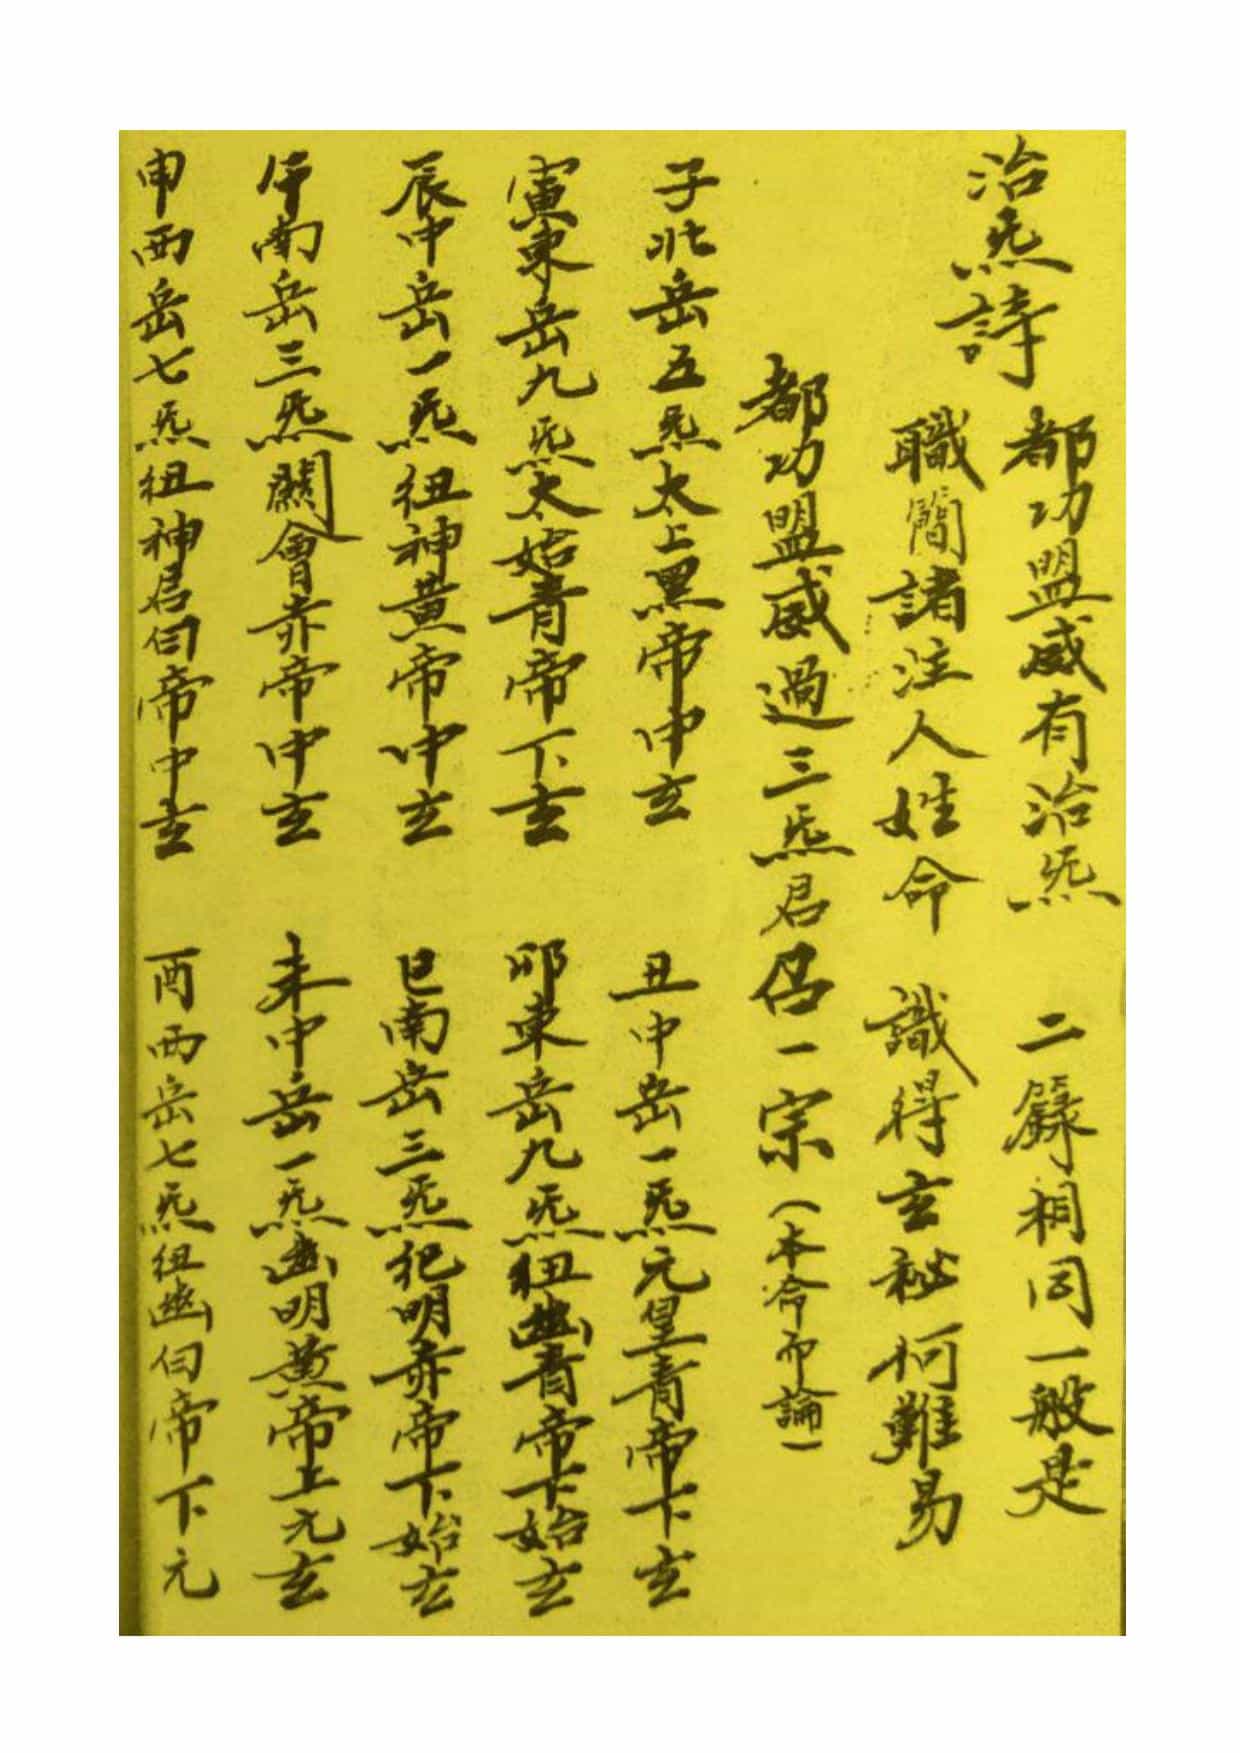 治炁詩
都功盟威有治炁 二籙相同一般是
職簡諸注人姓命 識得玄秘何難易
都功盟威過三炁君召一宗(本命而論)
子北岳五炁太上黑帝中玄 丑中岳一炁元皇青帝下玄
寅東岳九炁太始青帝下玄 卯東岳九炁紐幽青帝下始玄
辰中岳一炁紐神黃帝中玄 巳南岳三炁犯明赤帝下始玄
午南岳三炁關會赤帝中玄 未中岳一炁幽明黃帝上元玄
申西岳七炁紐神君白帝中玄 酉西岳七炁紐幽白帝下元